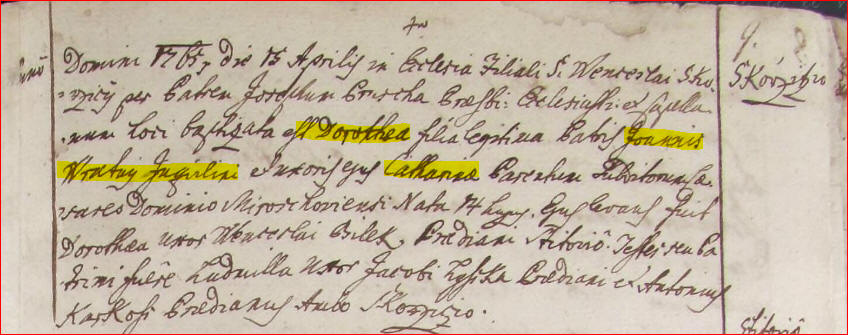 Domini 1765, die 15 Aprilis in Ecclesia Filiali S. Wenceslai Sko-
rzicij per Patrem Josephum Pruscha Præsbi: Ecclesiasti: et Capella-
num loci baptizata est Dorothea filia legitima Patris Joannis
Wratny Inquilini et Uxoris ejus Catharinæ Parentum Subditorum
Dominio Miroschoviensi Nata 14 hujus, Ejus Levans fuit
Dorothea Uxor Wenceslai Bilek, Prædiani Testes seu Pa-
trini fuêre Ludmilla Uxor Jacobi Prædiani et Antonius
Prædianus Ambo Skorzicio.
Skorzicio